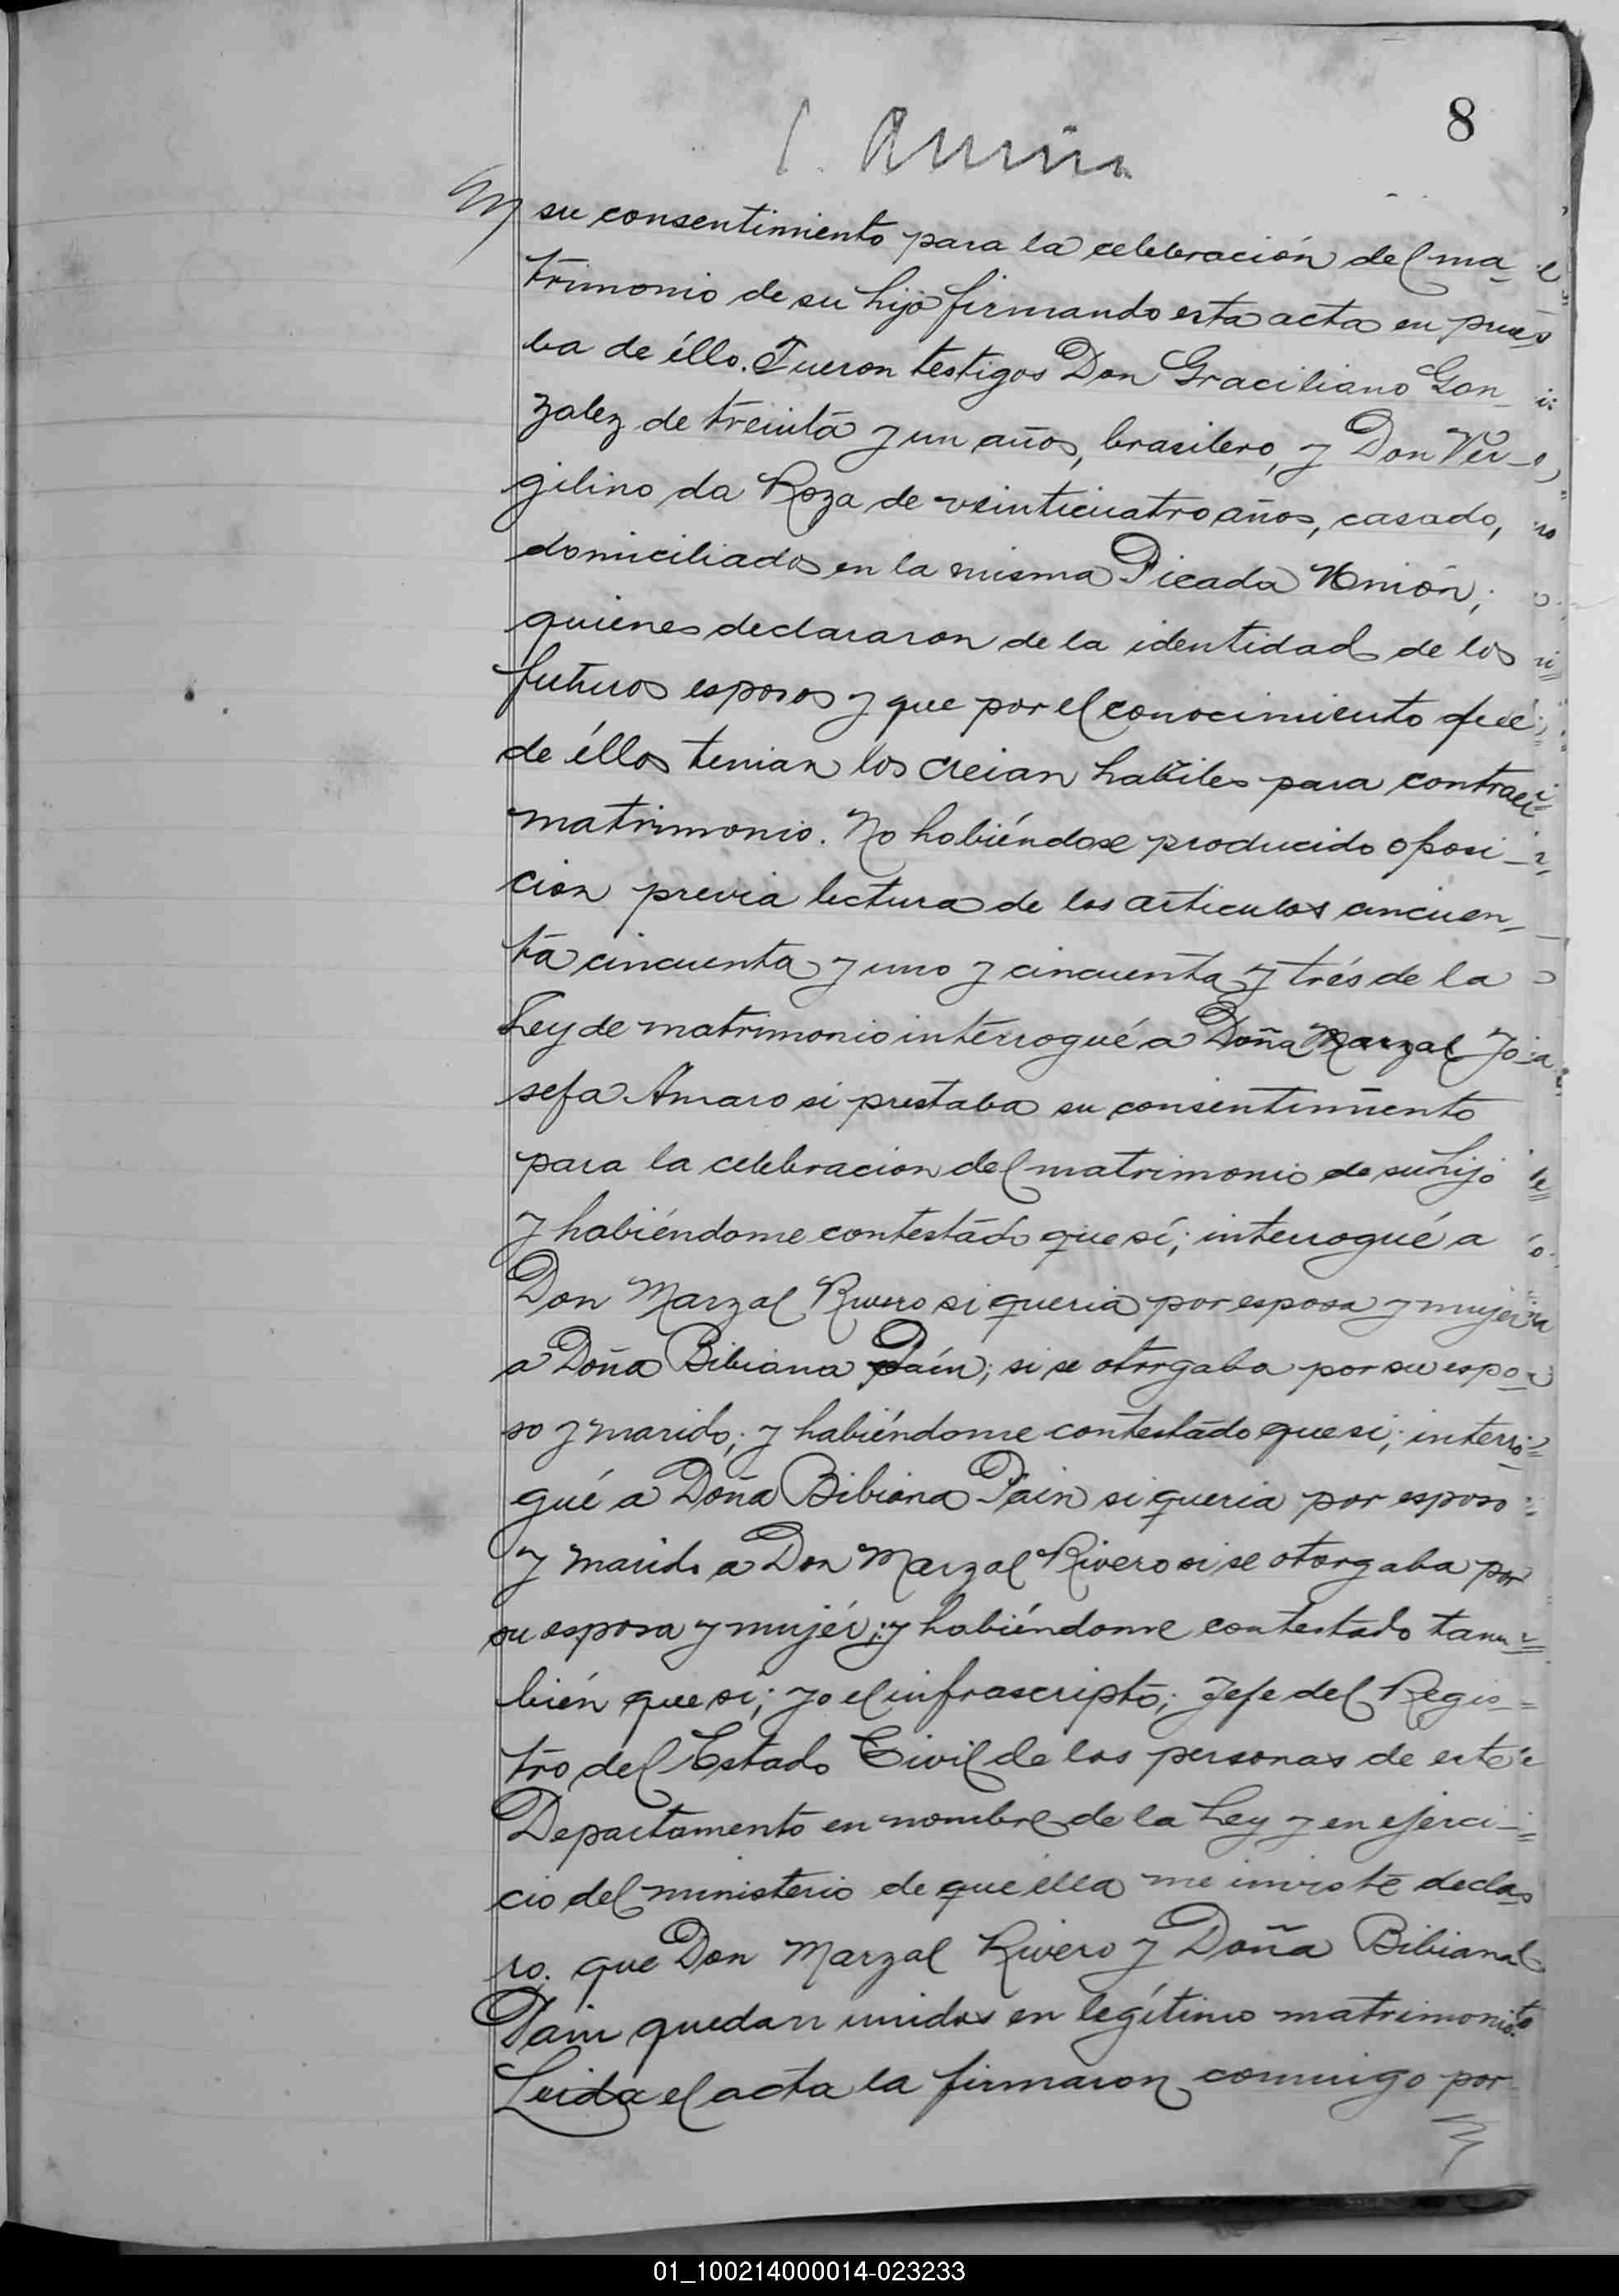 8
su consentimiento para la celebración del ma-
trimonio de su hijo firmando esta acta en prue-
ba de éllo. Fueron testigos Don Graciliano Gon-
zalez de treinta y un años, brasilero, y Don Vir-
gilino da Roza de veinticuatro años, casado,
domiciliados en la misma Picada Unión;
quienes declararon de la identidad de los
futuros esposos y que por el conocimiento que
de éllos tenian los creian habiles para contraer
matrimonio. No habiéndose producido oposi-
cion previa lectura de los articulos cincuen-
ta cincuenta y uno y cincuenta y trés de la
Ley de matrimonio interrogué a Doña Marzal Jo-
sefa Amaro si prestaba su consentimiento
para la celebracion del matrimonio de su hijo
y habiéndome contestado que sí; interrogué a
Don Marzal Rivero si queria por esposa y mujer
a Doña Bibiana Paín; si se otorgaba por su espo-
so y marido; y habiéndome contestado que si; interro-
gué a Doña Bibiana Pain si queria por esposo
y marido a Don Marzal Rivero si se otorgaba por
su esposa y mujér; y habiéndome contestado tam-
bién que sí; yo el infrascripto; Jefe del Regis-
tro del Estado Civil de las personas de este
Departamento en nombre de la Ley y en ejerci-
cio del ministerio de que élla me inviste decla-
ro; que Don Marzal Rivero y Doña Bibiana
Pain quedan unidos en legítimo matrimonio.
Leida el acta la firmaron conmigo por
01_100214000014-023233